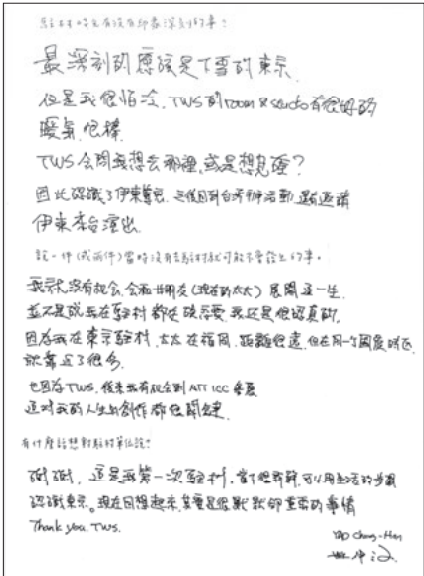 駐村時有沒有印象深刻的事？
最深刻的應該是下雪的東京.
但是我很怕冷, TWS的room & studio有很好的
暖氣, 很棒.
TWS會問我想去哪裡, 或是想見誰？
因此認識了伊東篤宏, 之後回到台灣辦活動, 還有邀請
伊東來台演出.
說一件(或兩件)當時沒有去駐村就可能不會發生的事。
我就沒有機會, 會和女朋友(現在的太太) 展開這一生,
並不是說我在駐村都在談戀愛, 我還是很認真的,
因為我在東京駐村, 太太在福岡, 距離很遠, 但在同一個國度時區,
就靠近了很多.
也因為TWS, 後來我有機會到 NTT ICC 參展
這對我的人生與創作都很關鍵.
有什麼話想對駐村單位說？
謝謝, 這是我第一次駐村, 當下很新鮮, 可以用生活的步調
認識東京. 現在回想起來, 其實是很默默卻重要的事情
Thank you TWS.
Yao Chung-Han
姚仲涵